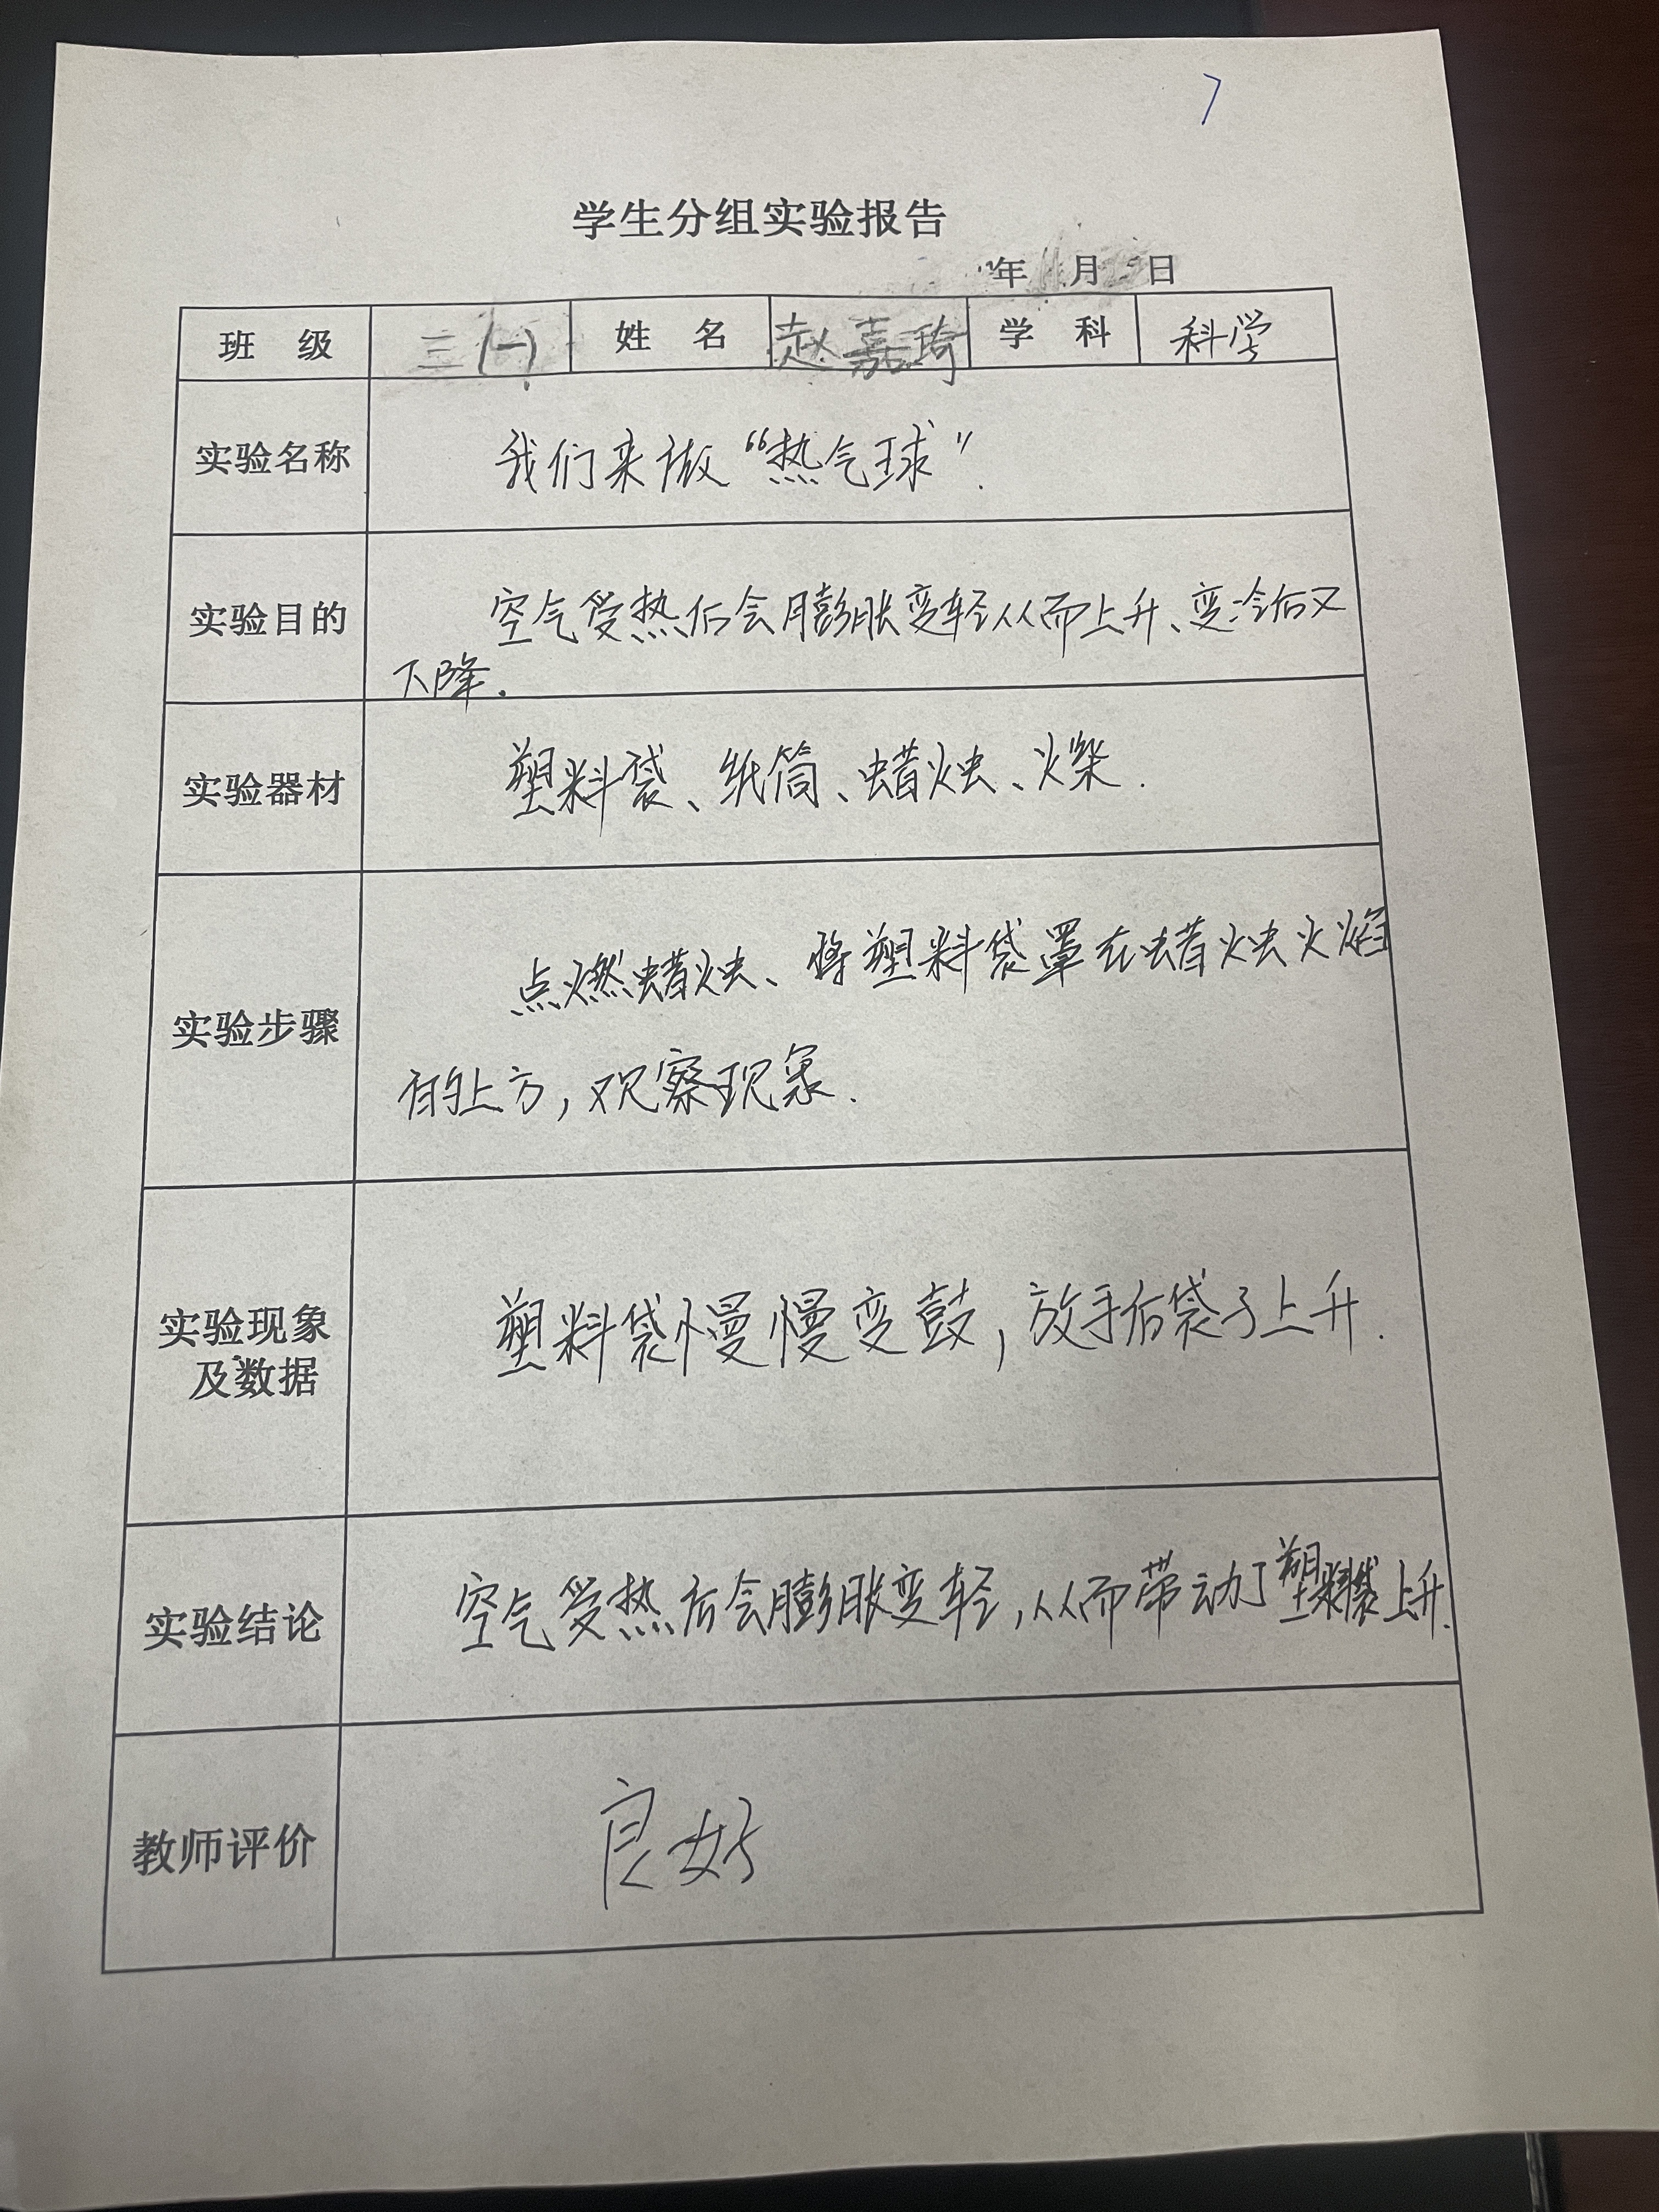 7
学生分组实验报告
年 11 月 日
班 级 三(一) 姓 名 赵嘉琦 学 科 科学
实验名称 我们来做“热气球”.
实验目的 空气受热后会膨胀变轻从而上升、变冷后又
下降.
实验器材 塑料袋、纸筒、蜡烛、火柴.
实验步骤 点燃蜡烛、将塑料袋罩在蜡烛火焰
的上方,观察现象.
实验现象
及数据 塑料袋慢慢变鼓,放手后袋子上升.
实验结论 空气受热后会膨胀变轻,从而带动了塑料袋上升.
教师评价 良好